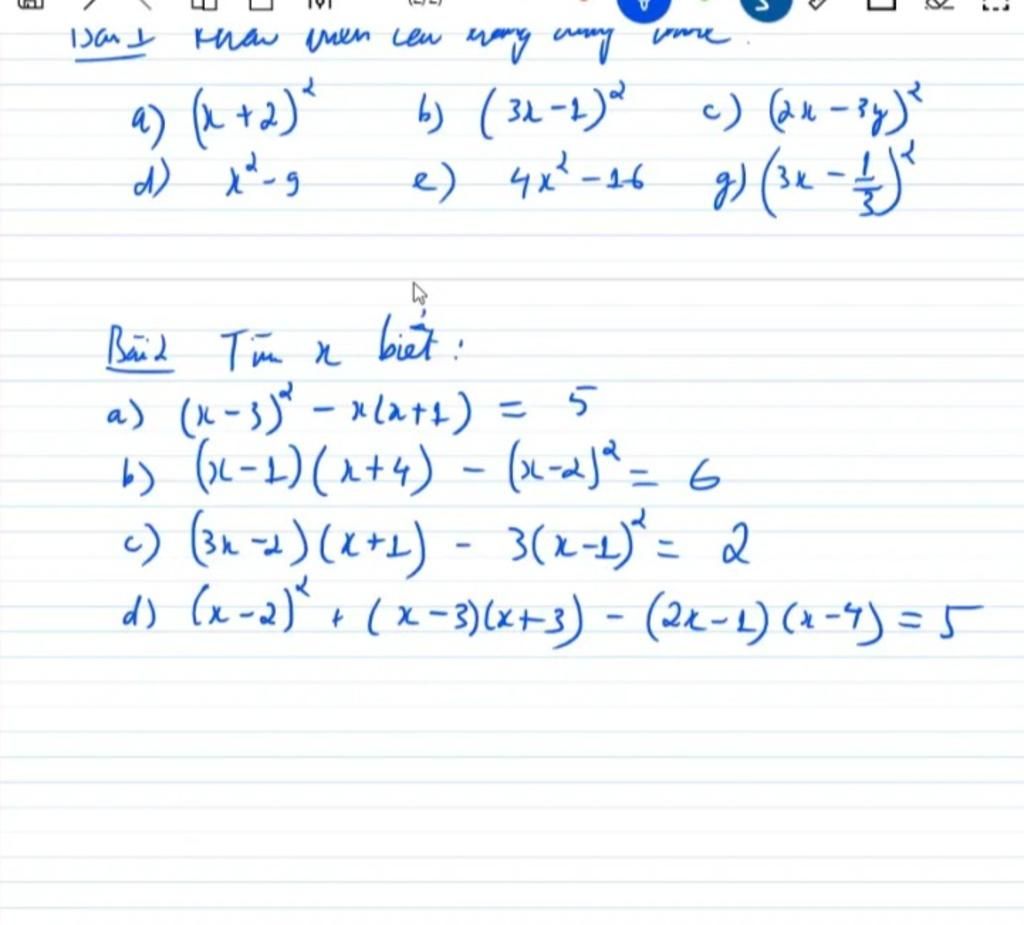 Bài 1 Khai triển các hằng đẳng thức.
a) (x+2)² b) (3x-1)² c) (2x-3y)²
d) x²-9 e) 4x²-16 g) (3x-1/3)²
Bài 2 Tìm x biết:
a) (x-3)² - x(x+1) = 5
b) (x-1)(x+4) - (x-2)² = 6
c) (3x-2)(x+1) - 3(x-1)² = 2
d) (x-2)² + (x-3)(x+3) - (2x-1)(x-4) = 5